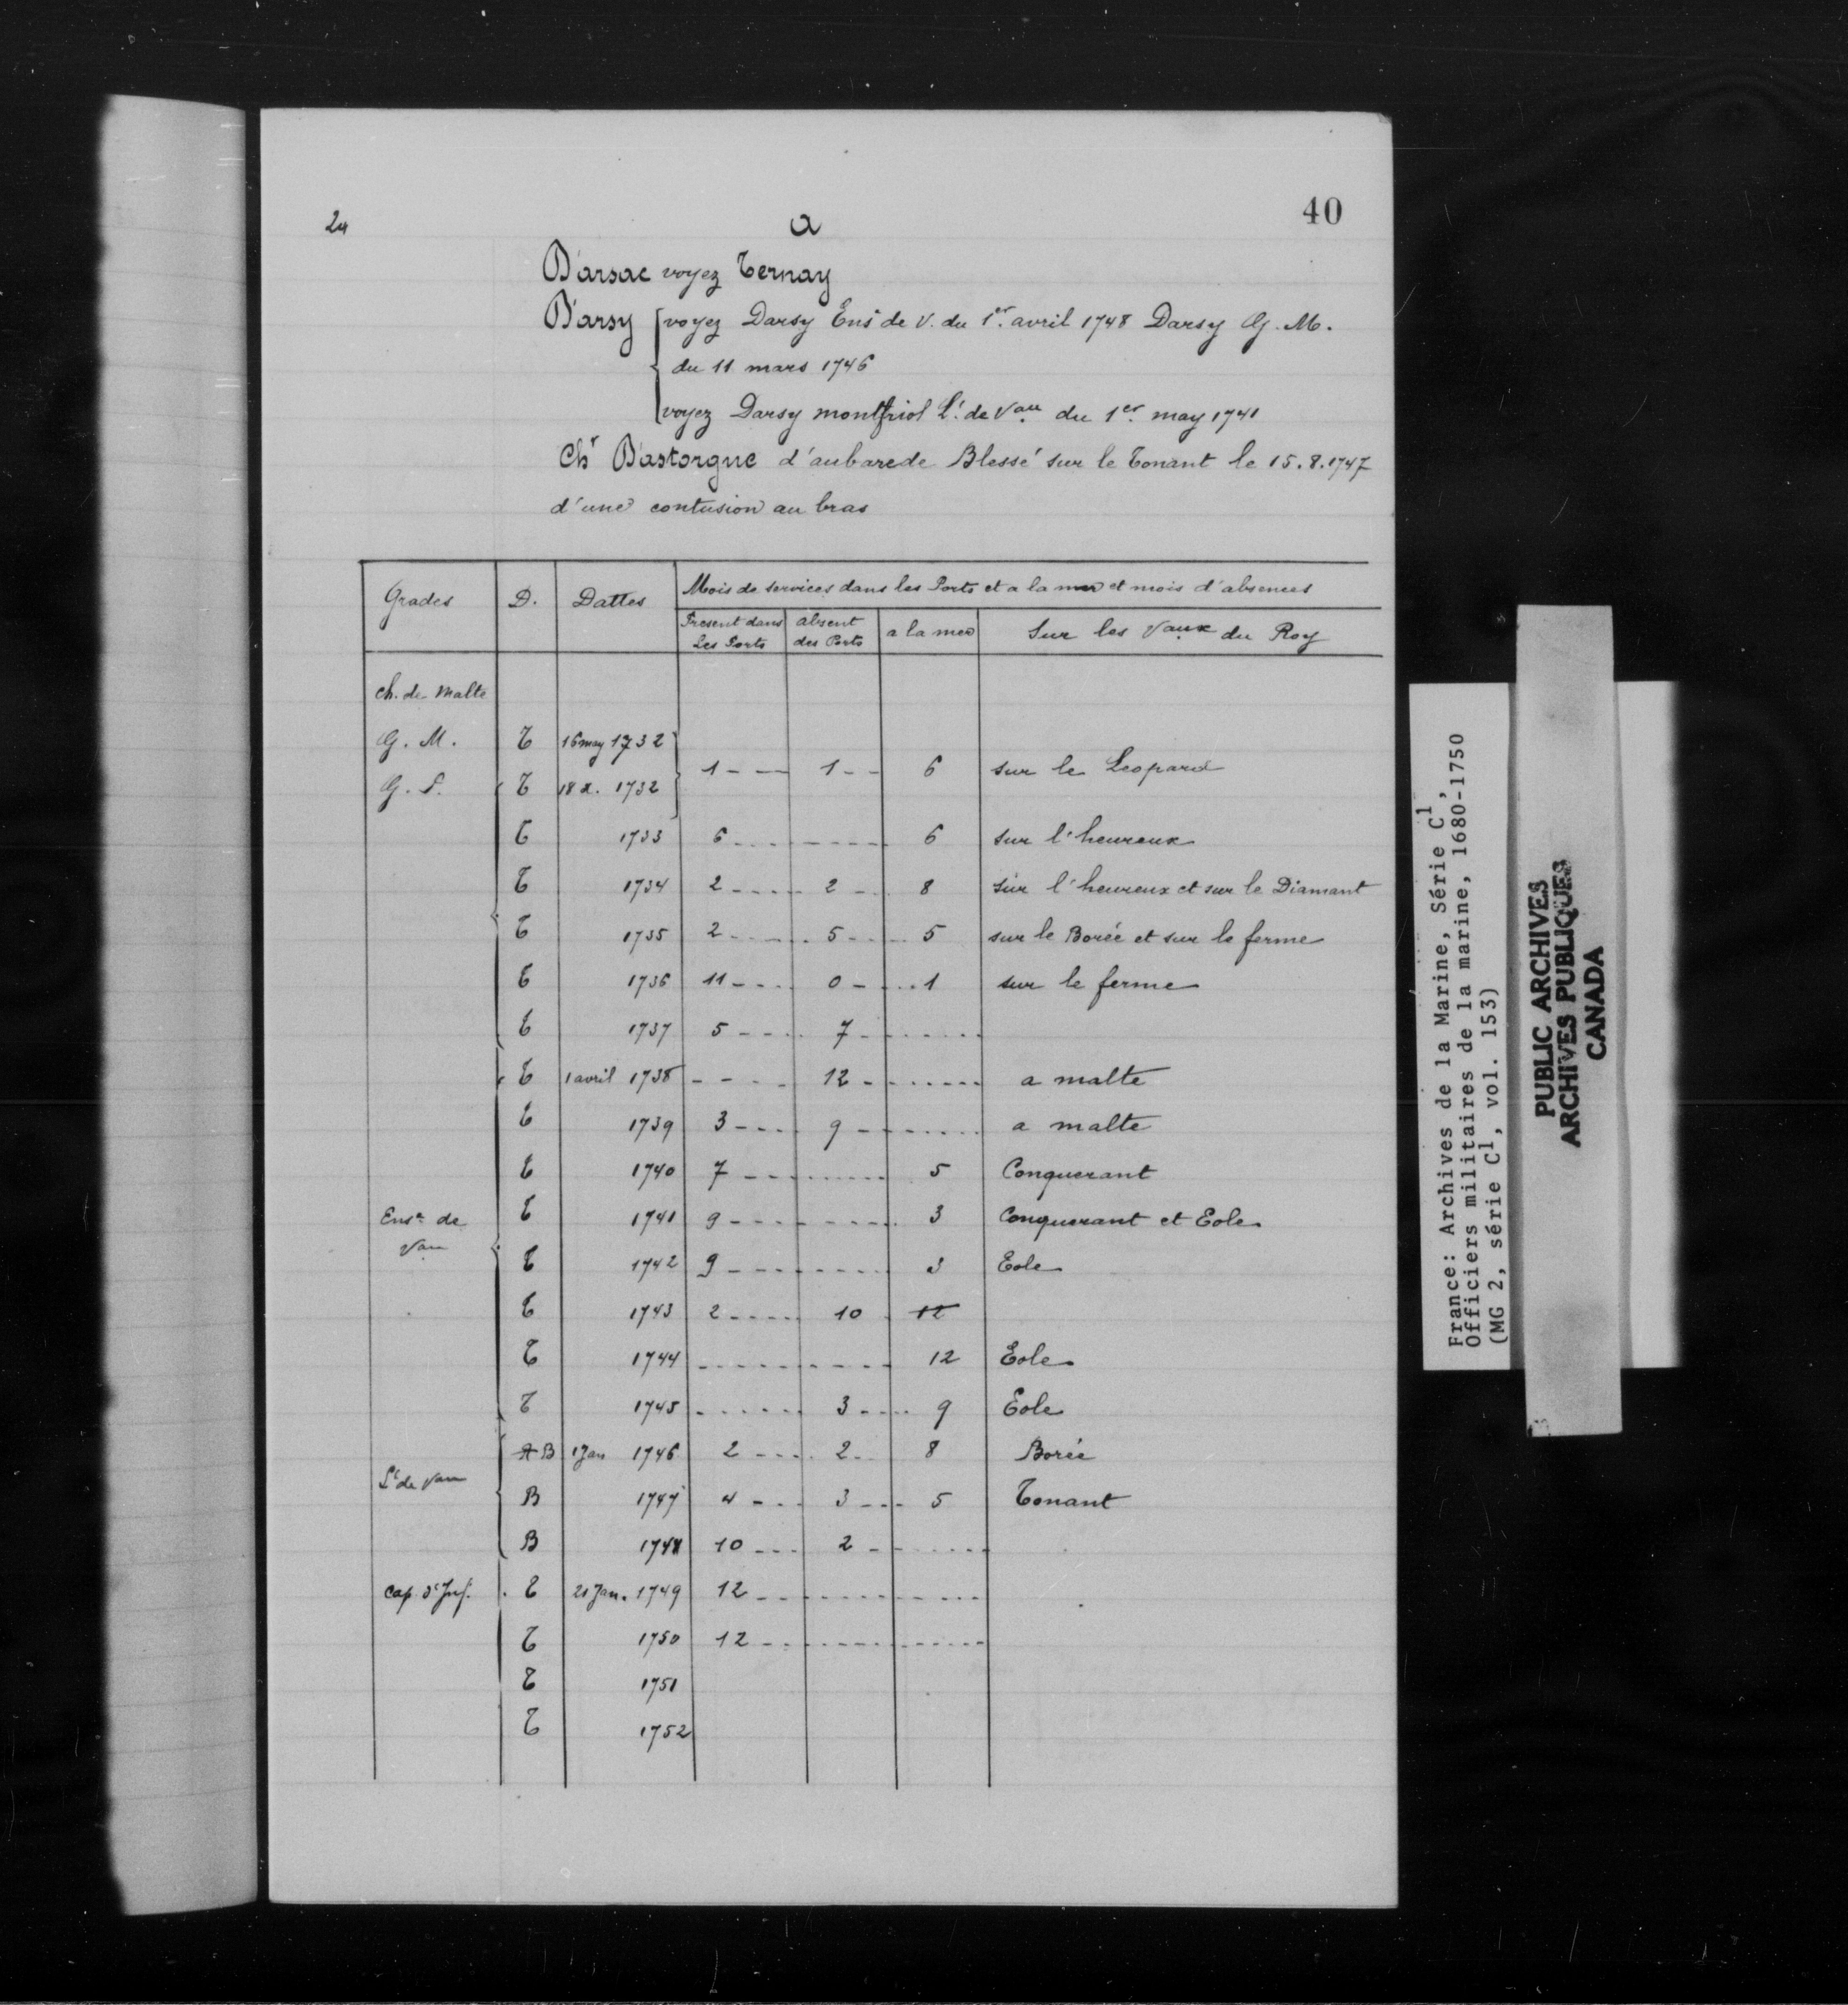 24 a 40
D'arsac voyez Ternay
D'arsy voyez Darsy Ens de V. du 1er avril 1748 Darsy G. M.
du 11 mars 1746
voyez Darsy montfriol Lt de Vau du 1er may 1741
Chr D'astorgue d'aubarede Blessé sur le Tonant le 15.8.1747
d'une contusion au bras
Grades D. Dattes Mois de services dans les Ports et a la mer et mois d'absences
Present dans Les Ports absent des Ports a la mer Sur les Vaux du Roy
Ch. de Malte
G. M. T 16 may 1732
1 1 6 sur le Leopard
G. T 18 1732
T 1733 6 6 sur l'heureux
T 1734 2 2 8 sur l'heureux et sur le Diamant
T 1735 2 5 5 sur le Borée et sur le ferme
T 1736 11 0 1 sur le ferme
T 1737 5 7
T 1 avril 1738 12 a malte
T 1739 3 9 a malte
T 1740 7 5 Conquerant
Ense de T 1741 9 3 Conquerant et Eole
Vau T 1742 9 3 Eole
T 1743 2 10 12
T 1744 12 Eole
T 1745 3 9 Eole
A B 1 Jan 1746 2 2 8 Borée
Lt de Vau
B 1747 4 3 5 Tonant
B 1748 10 2
Cap. d'Inf. T 21 Jan. 1749 12
T 1750 12
T 1751
T 1752
France: Archives de la Marine, Série C1,
Officiers militaires de la marine, 1680-1750
(MG 2, série C1, vol. 153)
PUBLIC ARCHIVES
ARCHIVES PUBLIQUES
CANADA